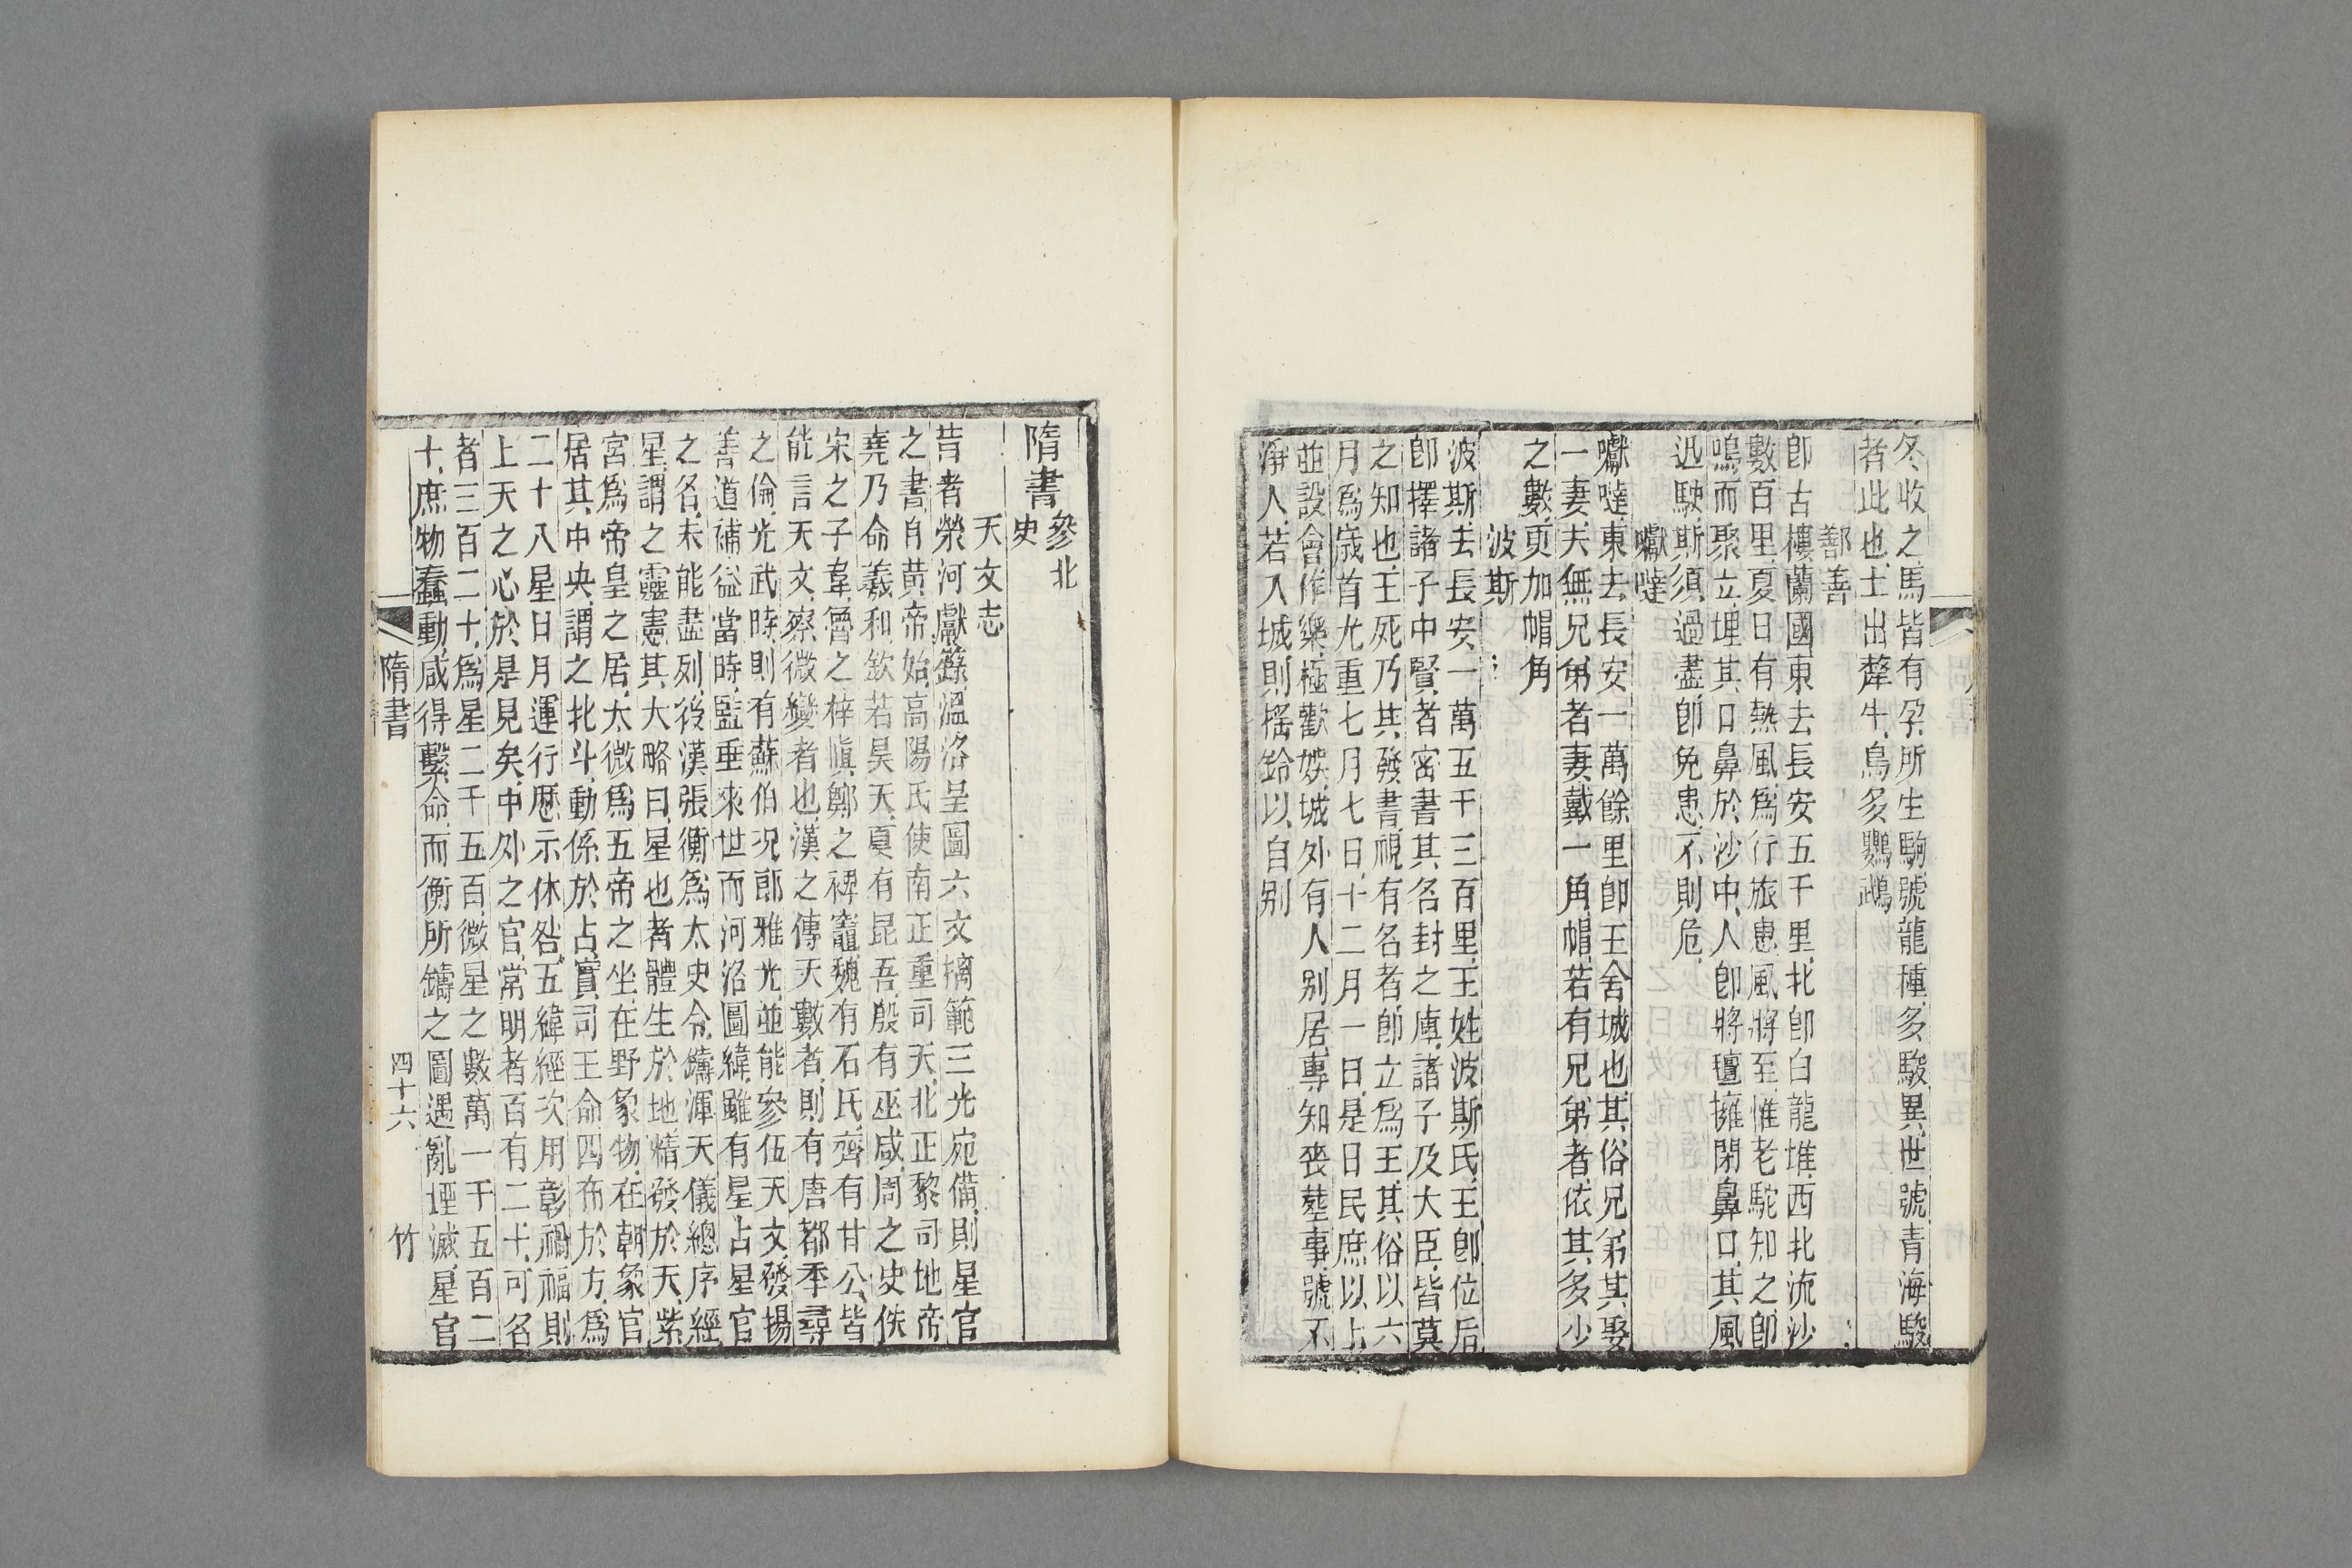 冬收之馬皆有孕所生駒號龍種多駿異世號青海駿
者此也土出犛牛鳥多鸚鵡
鄯善
卽古樓蘭國東去長安五千里北卽白龍堆西北流沙
數百里夏日有熱風爲行旅患風將至惟老駝知之卽
鳴而聚立埋其口鼻於沙中人卽將氊擁閉鼻口其風
迅駛斯須過盡卽免患不則危
囐噠
囐噠東去長安一萬餘里卽王舍城也其俗兄弟其娶
一妻夫無兄弟者妻戴一角帽若有兄弟者依其多少
之數更加帽角
波斯
波斯去長安一萬五千三百里王姓波斯氏王卽位后
卽擇諸子中賢者密書其名封之庫諸子及大臣皆莫
之知也王死乃其發書視有名者卽立爲王其俗以六
月爲歲首尤重七月七日十二月一日是日民庶以上
並設會作樂極歡娛城外有人别居專知喪葬事號不
淨人若入城則搖鈴以自别
隋書 參北史
天文志
昔者滎河獻籙溫洛呈圖六文摛範三光宛備則星官
之書自黃帝始高陽氏使南正重司天北正黎司地帝
堯乃命羲和欽若昊天夏有昆吾殷有巫咸周之史佚
宋之子韋魯之梓愼鄭之裨竈魏有石氏齊有甘公皆
能言天文察微變者也漢之傳天數者則有唐都李尋
之倫光武時則有蘇伯况郎雅光並能參伍天文發揚
善道補益當時監垂來世而河洛圖緯雖有星占星官
之名未能盡列後漢張衡爲太史令鑄渾天儀總序經
星謂之靈憲其大略曰星也者體生於地精發於天紫
宮爲帝皇之居太微爲五帝之坐在野象物在朝象官
居其中央謂之北斗動係於占實司王命四布於方爲
二十八星日月運行歷示休咎五緯經次用彰禍福則
上天之心於是見矣中外之官常明者百有二十可名
者三百二十爲星二千五百微星之數萬一千五百二
十庶物蠢動咸得繫命而衡所鑄之圖遇亂堙滅星官
隋書 四十六 竹